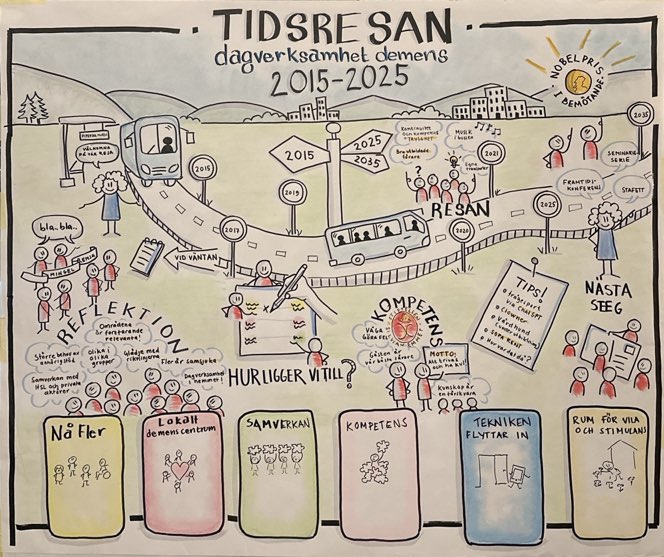 TIDSRESAN
dagverksamhet demens
2015-2025
NOBELPRIS
I BEMÖTANDE
VÄLKOMNA
PÅ VÅR RESA
2015
2019
2017
2015
2025
2035
Kontinuitet
MUSIK
I bussen
Bra utbildade
förare
?
2021
RESAN
2020
2035
SEMINARIE-
SERIE
FRAMTIDS-
KONFERENS
STAFETT
2025
NÄSTA
STEG
bla..bla..
MINGEL
VID VÄNTAN
REFLEKTION
Områdena
är fortfarande
relevanta!
Större behov av
anhörigstöd
Olika i
olika
grupper
Glädje med
riktningarna
Fler är samsjuka
Samverkan med
HSL och privata
aktörer
Dagverksamhet
i hemmet!
HUR LIGGER VI TILL?
KOMPETENS
VÅGA
GÖRA FEL!
Gästen är
vår bästa lärare
MOTTO:
Att trivas
och ha kul!
Kunskap är
en färskvara
TIPS!
• Frågesport
via ChatGPT
• Clowner
• Vårdhund
• SOPA RENT
Nå fler
Lokalt
demenscentrum
SAMVERKAN
KOMPETENS
TEKNIKEN
FLYTTAR IN
RUM FÖR VILA
OCH STIMULANS